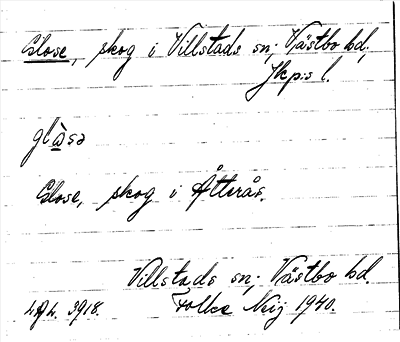 Glose, skog i Villstads sn; Västbo hd,
Jkp:s l.
glὰsə
Glose, skog i Åtterås.
Villstads sn; Västbo hd.
3918. Folke Neij 1940.